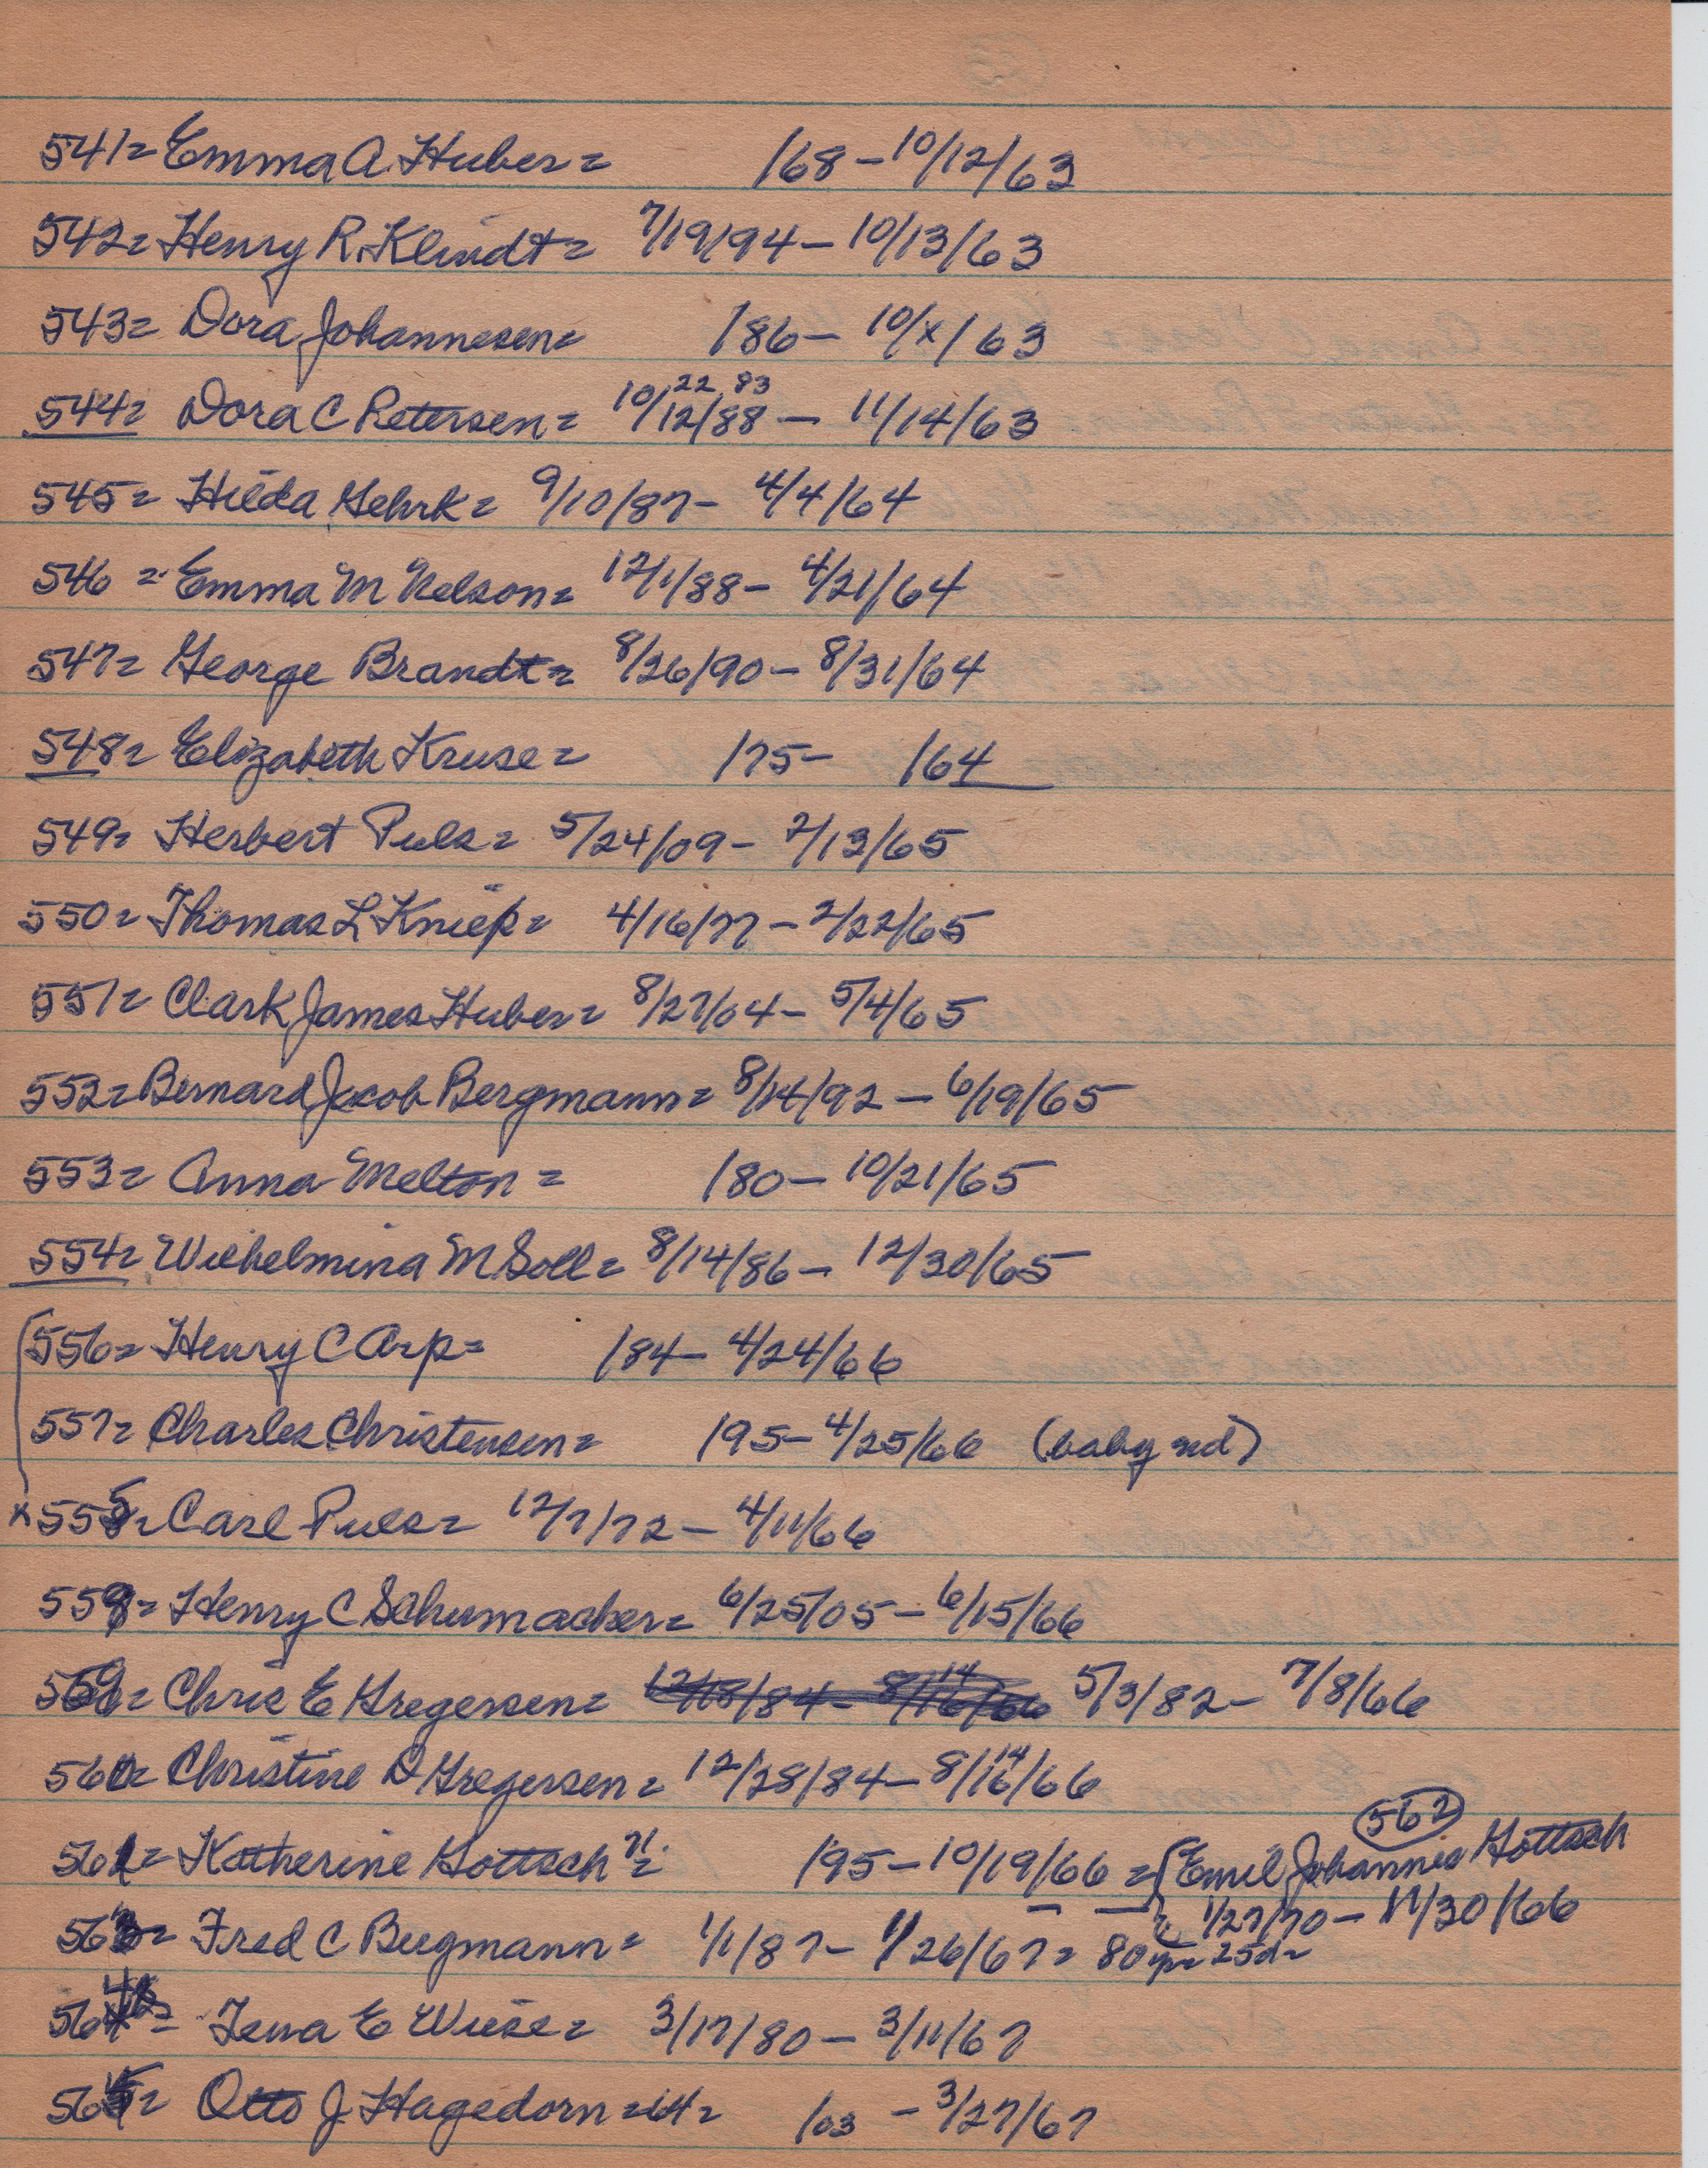 541= Emma A. Huber= /68 - 10/12/63
542= Henry R. Klindt= 7/19/94 - 10/13/63
543= Dora Johannesen= /86 - 10/x/63
22 83
544= Dora C Petersen= 10/12/88 - 11/14/63
545= Hilda Gehrk= 9/10/87 - 4/4/64
546 = Emma M Nelson= 12/1/88 - 4/21/64
547= George Brandt= 8/26/90 - 8/31/64
548= Elizabeth Kruse= /75 - /64
549= Herbert Puls= 5/24/09 - 2/13/65
550= Thomas L Kniep= 4/16/77 - 2/22/65
551= Clark James Huber= 8/27/04 - 5/4/65
552= Bernard Jacob Bergmann= 8/14/92 - 6/19/65
553= Anna Melton= /80 - 10/21/65
554= Wilhelmina M Soll= 8/14/86 - 12/30/65
556= Henry C Arp= /84 - 4/24/66
557= Charles Christensen= /95 - 4/25/66 (baby nd)
x 555= Carl Puls= 12/7/72 - 4/11/66
558= Henry C Schumacher= 6/25/05 - 6/15/66
559= Chris E Gregersen= 12/18/84 - 8/16/66 5/3/82 - 7/8/66
560= Christine D Gregersen= 12/28/84 - 8/16/66
14
562
561= Katherine Gottsch 71= /95 - 10/19/66 = {Emil Johannis Gottsch
1/27/70 - 11/30/66
563= Fred C Bergmann= 1/1/87 - 1/26/67= 80y= 25d=
564= Tena E Wiese= 3/17/80 - 3/11/67
565= Otto J. Hagedorn=64= /03 - 3/27/67